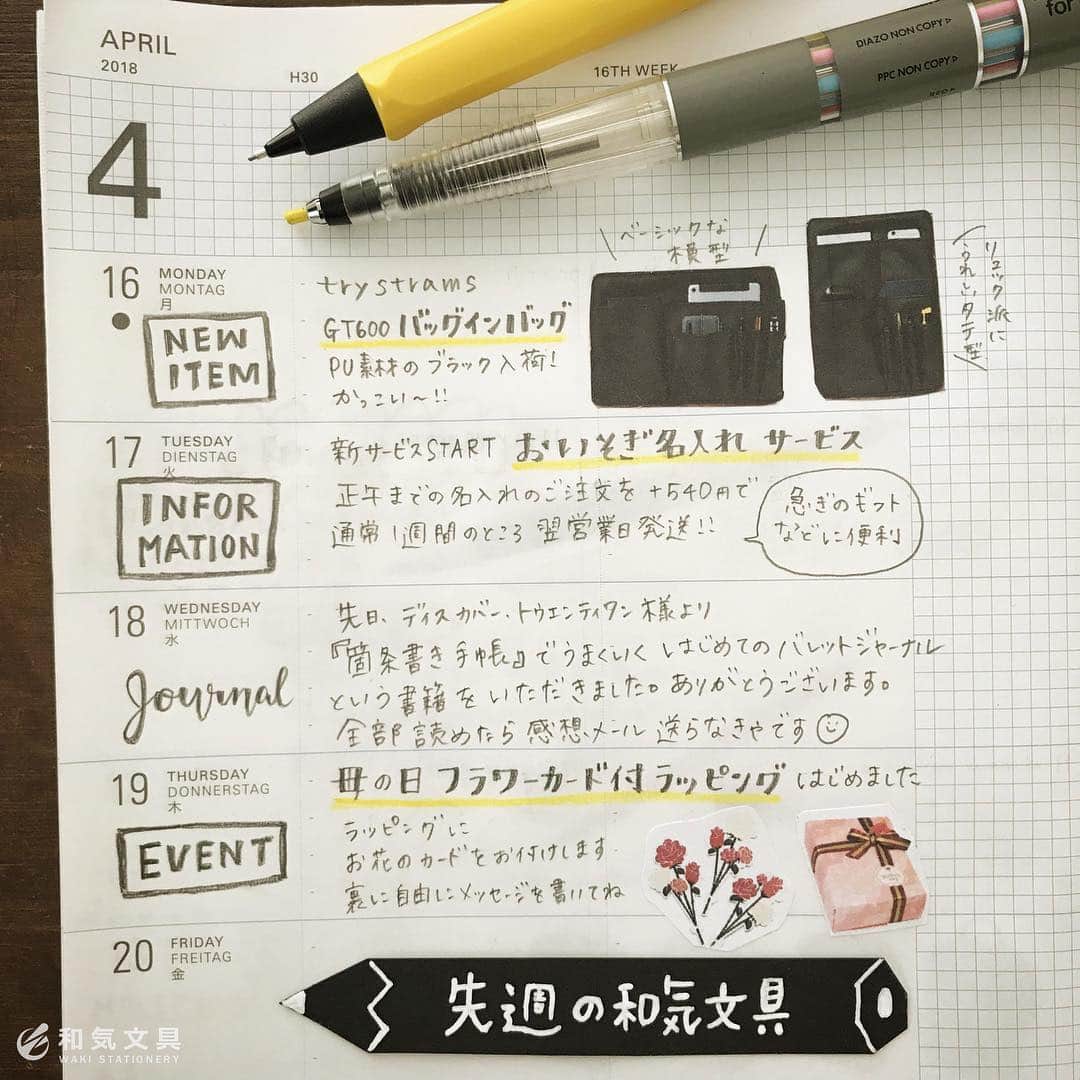 APRIL
2018
H30
16TH WEEK
4
DIAZO NON COPY
PPC NON COPY
for
16 MONDAY
MONTAG
月
NEW
ITEM
trystrams
GT600 バッグインバッグ
PU素材のブラック入荷!
かっこい〜!!
ベーシックな
横型
リュック派に
うれしいタテ型
17 TUESDAY
DIENSTAG
火
INFOR
MATION
新サービスSTART おいそぎ名入れ サービス
正午までの名入れのご注文を +540円で
通常1週間のところ 翌営業日発送!!
急ぎのギフト
などに便利
18 WEDNESDAY
MITTWOCH
水
Journal
先日、ディスカバー・トゥエンティワン様より
『箇条書き手帳』でうまくいく はじめてのバレットジャーナル
という書籍をいただきました。ありがとうございます。
全部読めたら感想メール送らなきゃです
19 THURSDAY
DONNERSTAG
木
EVENT
母の日 フラワーカード付ラッピング はじめました
ラッピングに
お花のカードをお付けします
裏に自由にメッセージを書いてね
20 FRIDAY
FREITAG
金
先週の和気文具
和気文具
WAKI STATIONERY